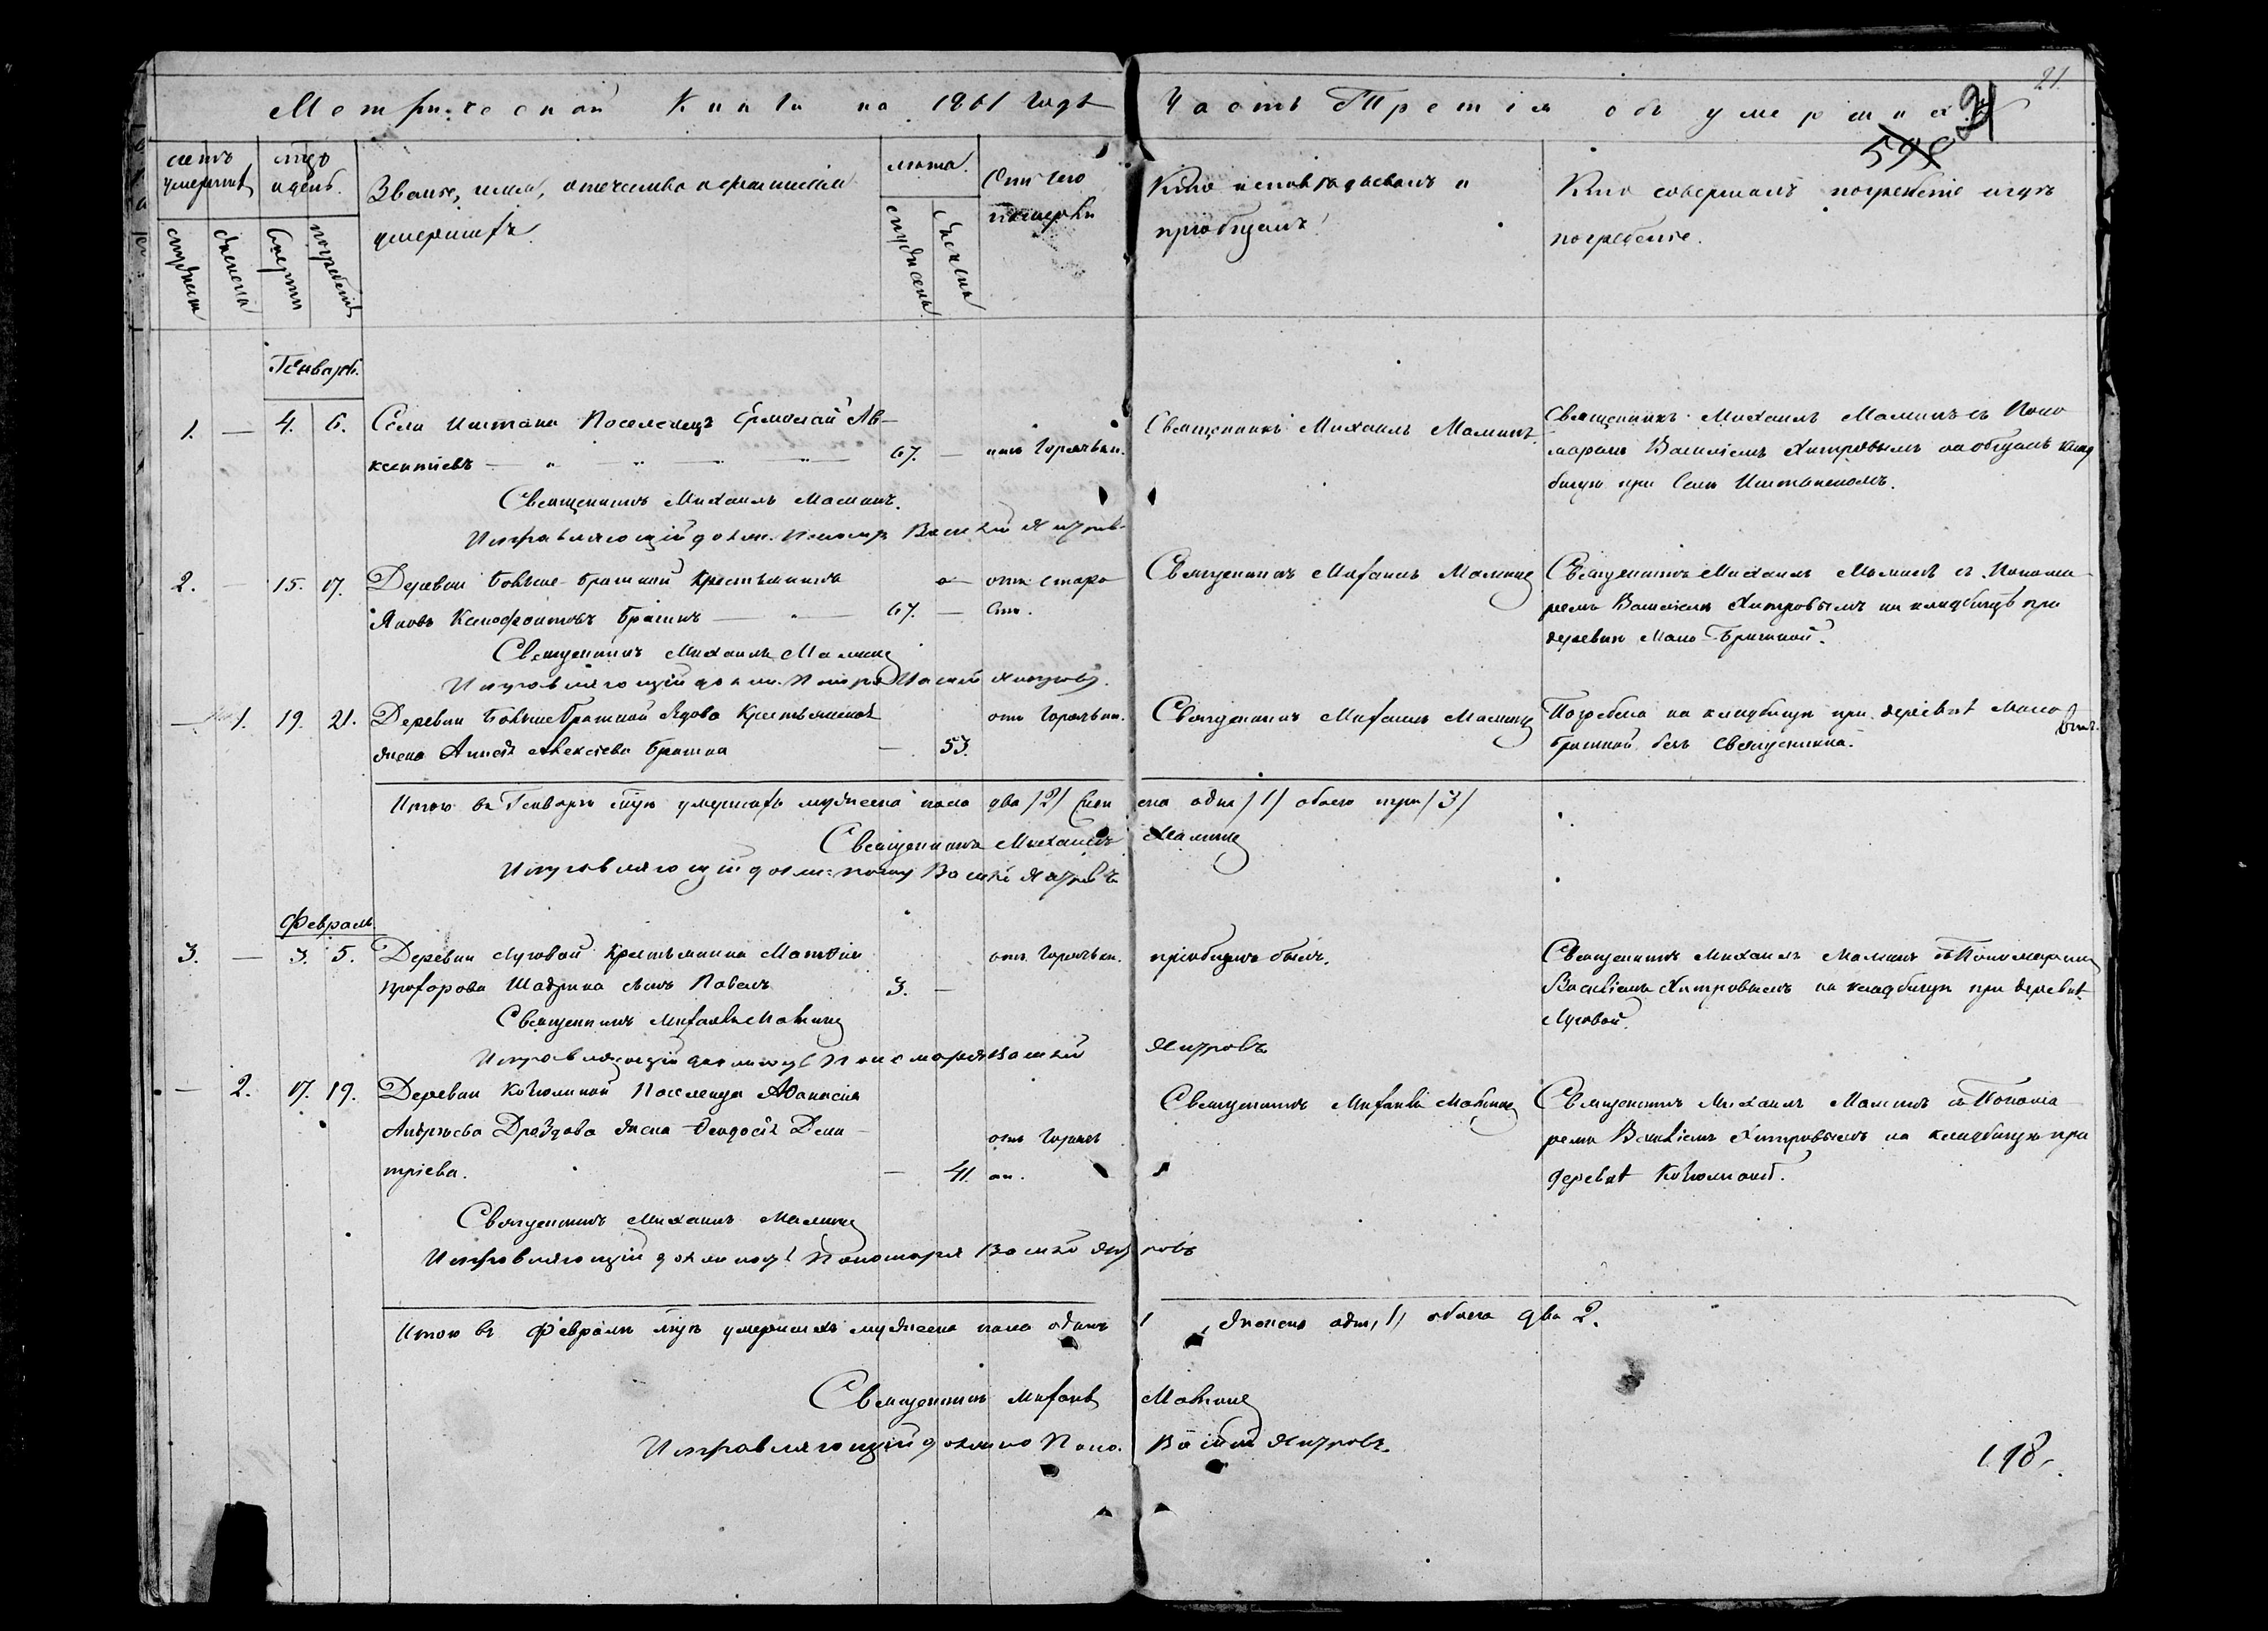 Метрической Книги на 1861 годъ
Часть Третія объ умершихъ
21
595
21
счетъ умершихъ
мужеска
женска
мцъ и день.
смерти
погребенія
Званіе, имя, отчество и фамилія
умершихъ.
лета.
мужеска
женска
Отъ чего
померъ
Кто исповѣдывалъ и
пріобщалъ
Кто совершалъ погребеніе и гдѣ
погребенъ.
Генварь.
1. — 4. 6. Села Иштана Поселенецъ Ермолай Ав-
ксентіевъ — 67. — отъ Горячки.
Священникъ Михаилъ Малинъ.
Священникъ Михаилъ Малинъ съ Поно
маремъ Василіемъ Хитровымъ на общемъ клад
бищѣ при Селѣ Иштанскомъ.
Священникъ Михаилъ Малинъ.
Исправляющій должн. Пономар Василій Хитровъ
2. — 15. 17. Деревни Больше-Брагиной Крестьянинъ
Яковъ Ксенофонтовъ Брагинъ — 67. —
отъ старо
сти.
Священникъ Михаилъ Малинъ
Священникъ Михаилъ Малинъ съ Понома
ремъ Василіемъ Хитровымъ на кладбищѣ при
деревнѣ Мало-Брагиной.
Священникъ Михаилъ Малинъ
Исправляющій должн. Понаря Василій Хитровъ.
— 1. 19. 21. Деревни БольшеБрагиной Вдова Крестьянская
жена Алексѣева Брагина — 53.
отъ Горячки.
Священникъ Михаилъ Малинъ
Погребена на кладбищѣ при деревнѣ Мало
брагиной безъ Священника.
Итого въ Генварѣ мцѣ умершихъ мужеска пола два /2/ жен ска одна /1/ обоего три /3/
Священникъ Михаилъ Малинъ
Исправляющій должн: поном Василій Хитровъ
Февраль
3. — 3. 5. Деревни Луговой Крестьянина Матвѣя
Прохорова Шадрина сынъ Павелъ 3. —
отъ Горячки.
пріобщенъ былъ.
Священникъ Михаилъ Малинъ съ Пономаремъ
Василіемъ Хитровымъ на кладбищѣ при деревнѣ
Луговой.
Священникъ Михаилъ Малинъ
Исправляющій должность Пономаря Василій Хитровъ
— 2. 17. 19. Деревни Поселенца Аѳанасія
Андреева Дроздова жена Ѳеодосія Дми-
тріева. — 41.
отъ Горяч
ки.
Священникъ Михаилъ Малинъ
Священникъ Михаилъ Малинъ съ Понома
ремъ Василіемъ Хитровымъ на кладбищѣ при
деревнѣ
Священникъ Михаилъ Малинъ
Исправляющій должность Пономаря Василій Хитровъ
Итого въ Февралѣ мцѣ умершихъ мужеска пола одинъ 1, женска одна, 1, обоего два 2.
Священникъ Михаилъ Малинъ
Исправляющій должно Поно. Василій Хитровъ.
198.